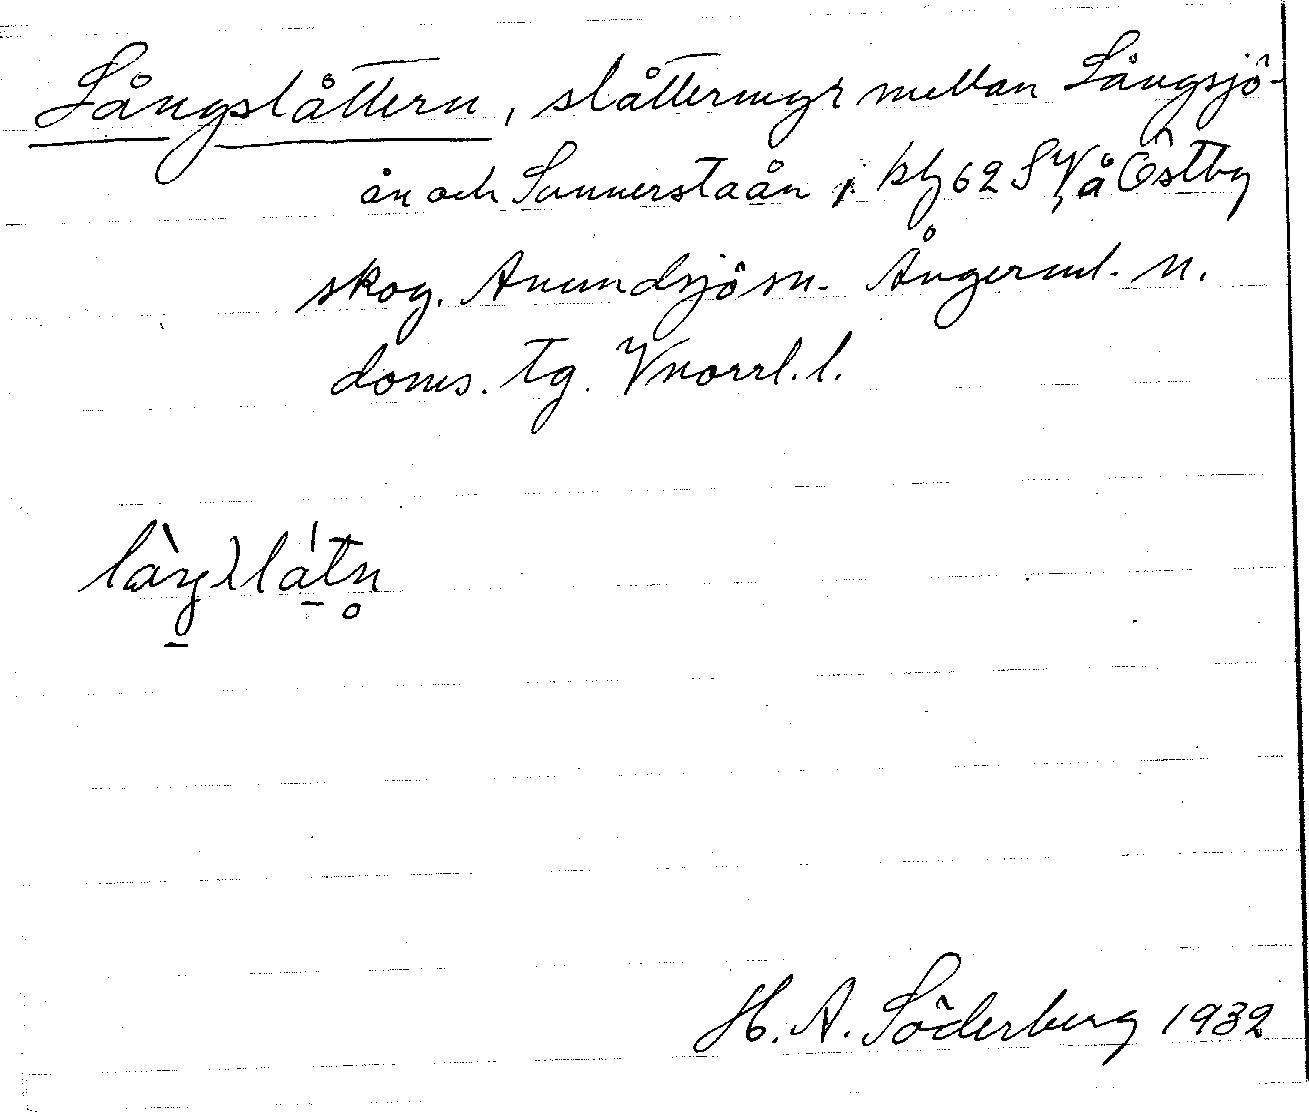 Långslåttern, slåttermyr mellan Långsjö-
ån och Sunnerstaån, bl 62 SV å Östby
skog. Anundsjö sn. Ångerml. n.
doms. tg. Vnorrl. l.
H. A. Söderberg 1932